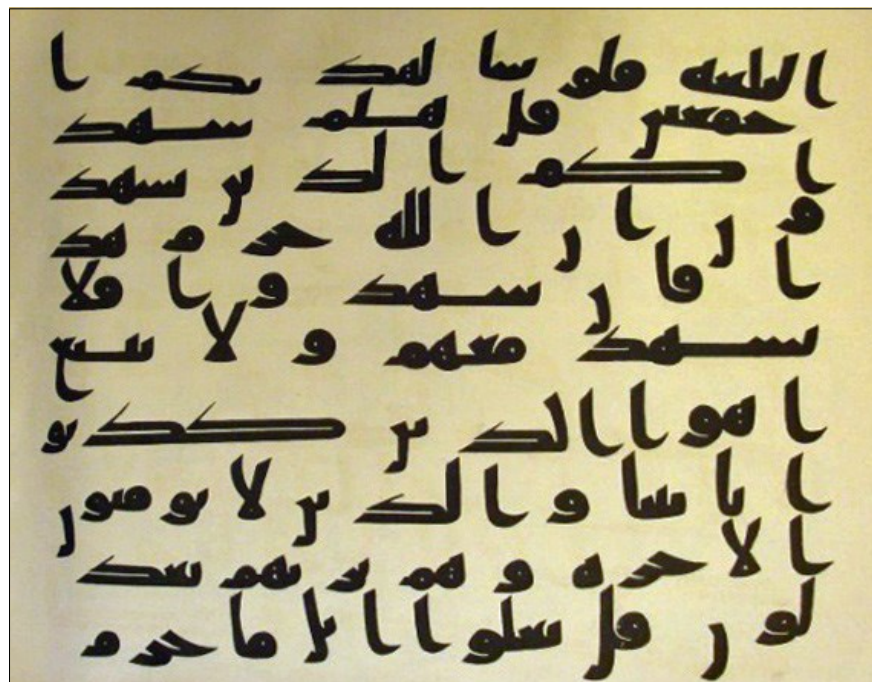 البلغه فلو شا لهد يكم ا
جمعين قل هلم شهد
ا كم الذين يشهد
و ن ا ن الله حر م هذ
ا فا ن شهد و ا فلا
تشهد معهم و لا تتبع
ا هو ا الذين كذبو
ا با يتنا و الذين لا يومنون
ا لا خره و هم بر بهم يعد
لو ن قل تعلو ا اتل ما حر م